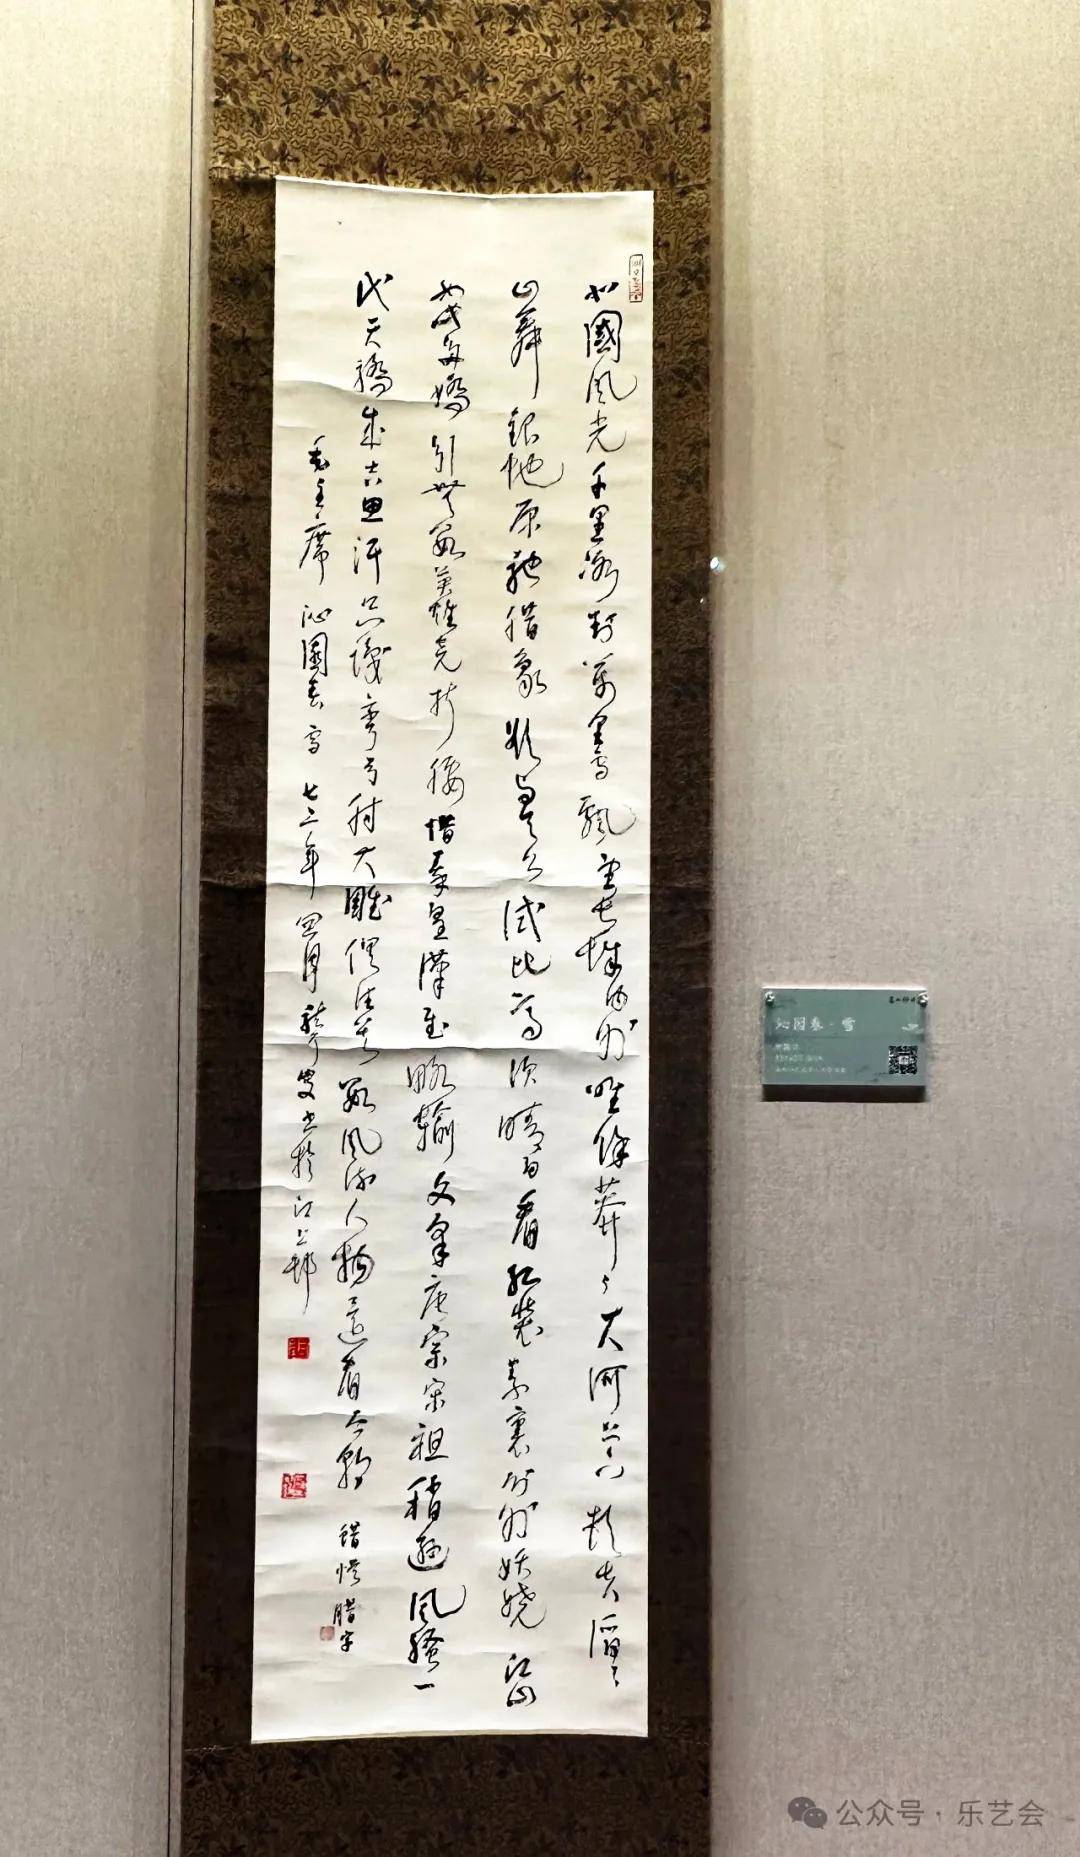 北國風光千里冰封萬里雪飄望長城內外唯餘莽〻大河上下頓失滔〻
山舞銀蛇原馳腊象欲與天公試比高須晴日看紅裝素裹分外妖嬈江山
如此多嬌引無數英雄競折腰惜秦皇漢武略輸文采唐宗宋祖稍遜風騷一
代天驕成吉思汗只識彎弓射大雕俱往矣數風流人物還看今朝
錯悞腊字
毛主席 沁園春 雪 七三年四月聾叟書於江上邨
沁园春·雪
公众号·乐艺会